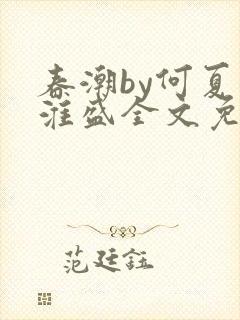 春潮by何夏
淮盛全文免
范廷钰